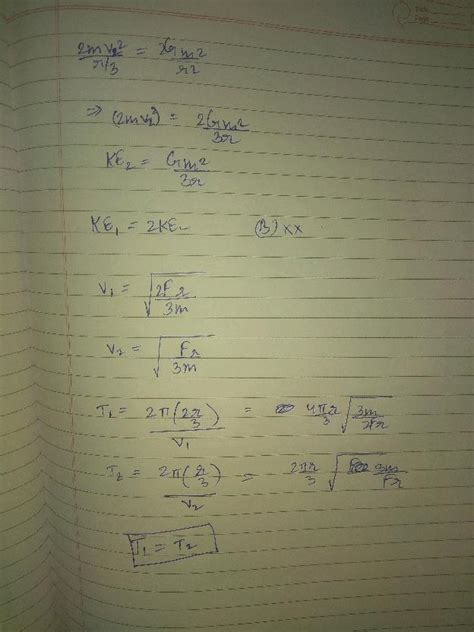 2mv₂²/(r/3) = 2Gm²/r²
⇒ (2mv₂²) = 2Gm²/3r
KE₂ = Gm²/3r
KE₁ = 2KE₂ (B) xx
V₁ = √(2Fr/3m)
V₂ = √(Fr/3m)
T₁ = 2π(2r/3)/V₁ = 4πr/3 √(3m/2Fr)
T₂ = 2π(r/3)/V₂ = 2πr/3 √(3m/Fr)
T₁ = T₂